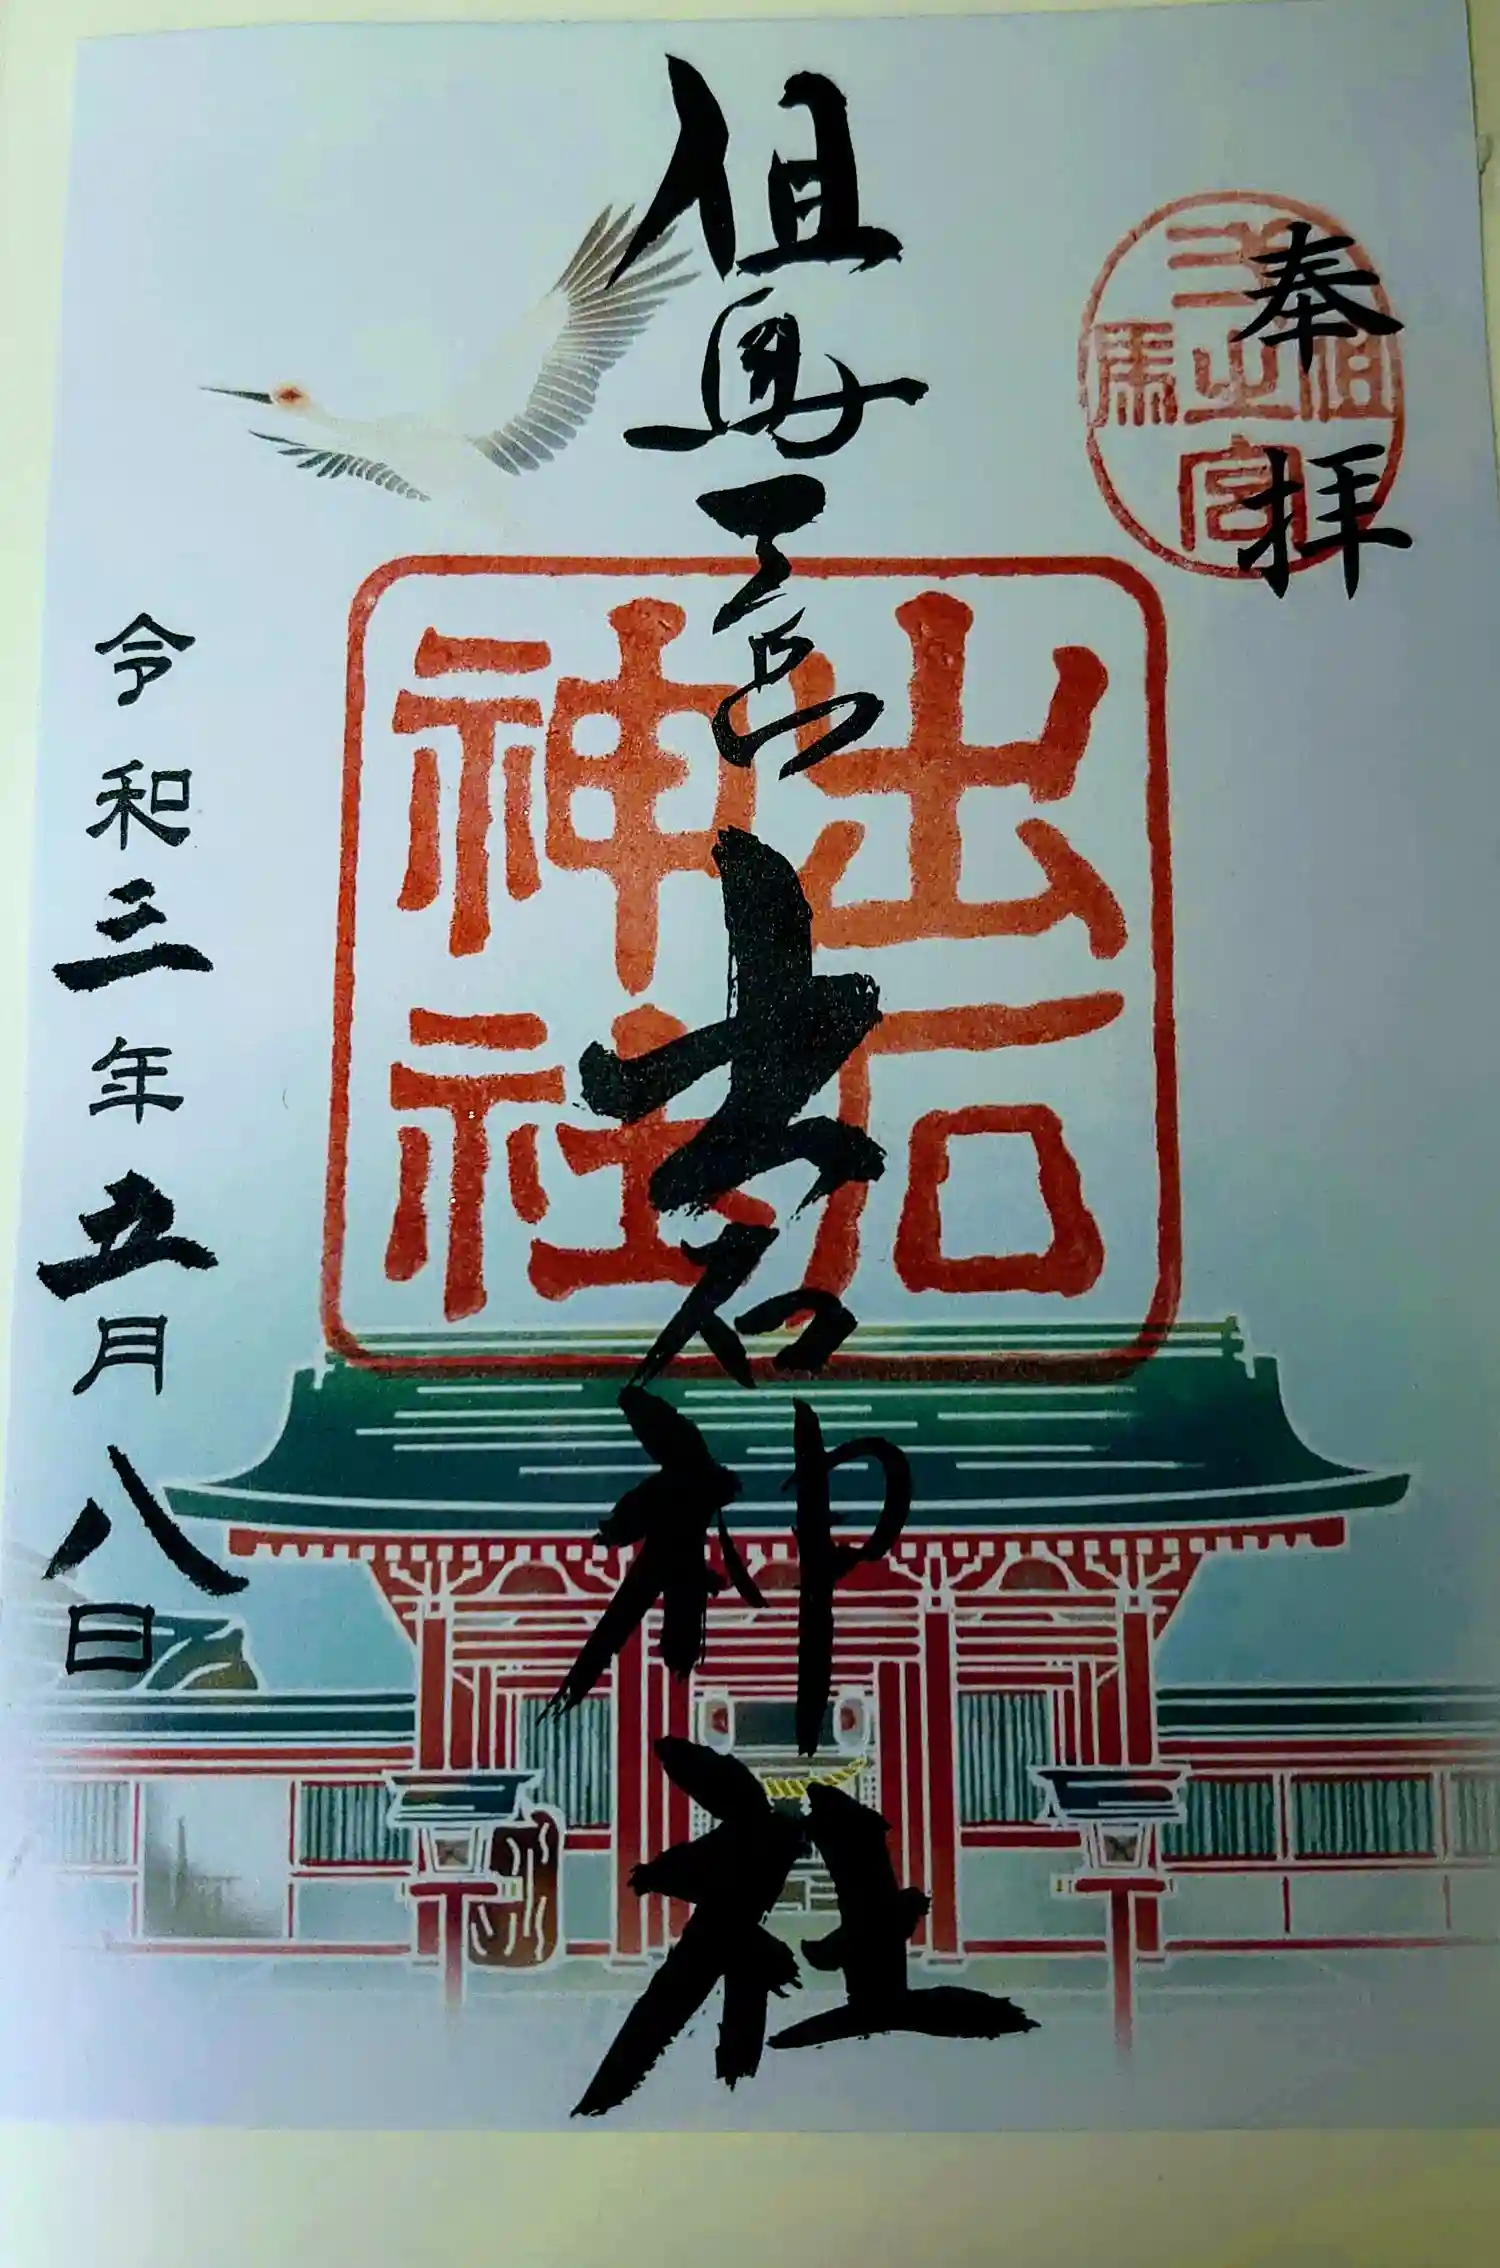 奉拝
但馬一之宮
但馬一之宮 出石神社
出石
神社
令和三年五月八日